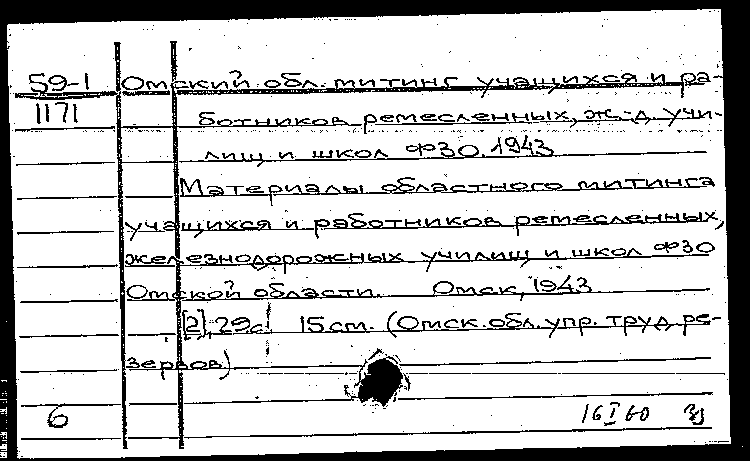 59-1 Омский обл. митинг учащихся и ра-
1171 ботников ремесленных, ж.-д. учи-
лищ и школ ФЗО. 1943
Материалы областного митинга
учащихся и работников ремесленных,
железнодорожных училищ и школ ФЗО
Омской области. Омск, 1943
[2], 29с. 15 см. (Омск. обл. упр. труд. ре-
зервов)
6 16 I 60